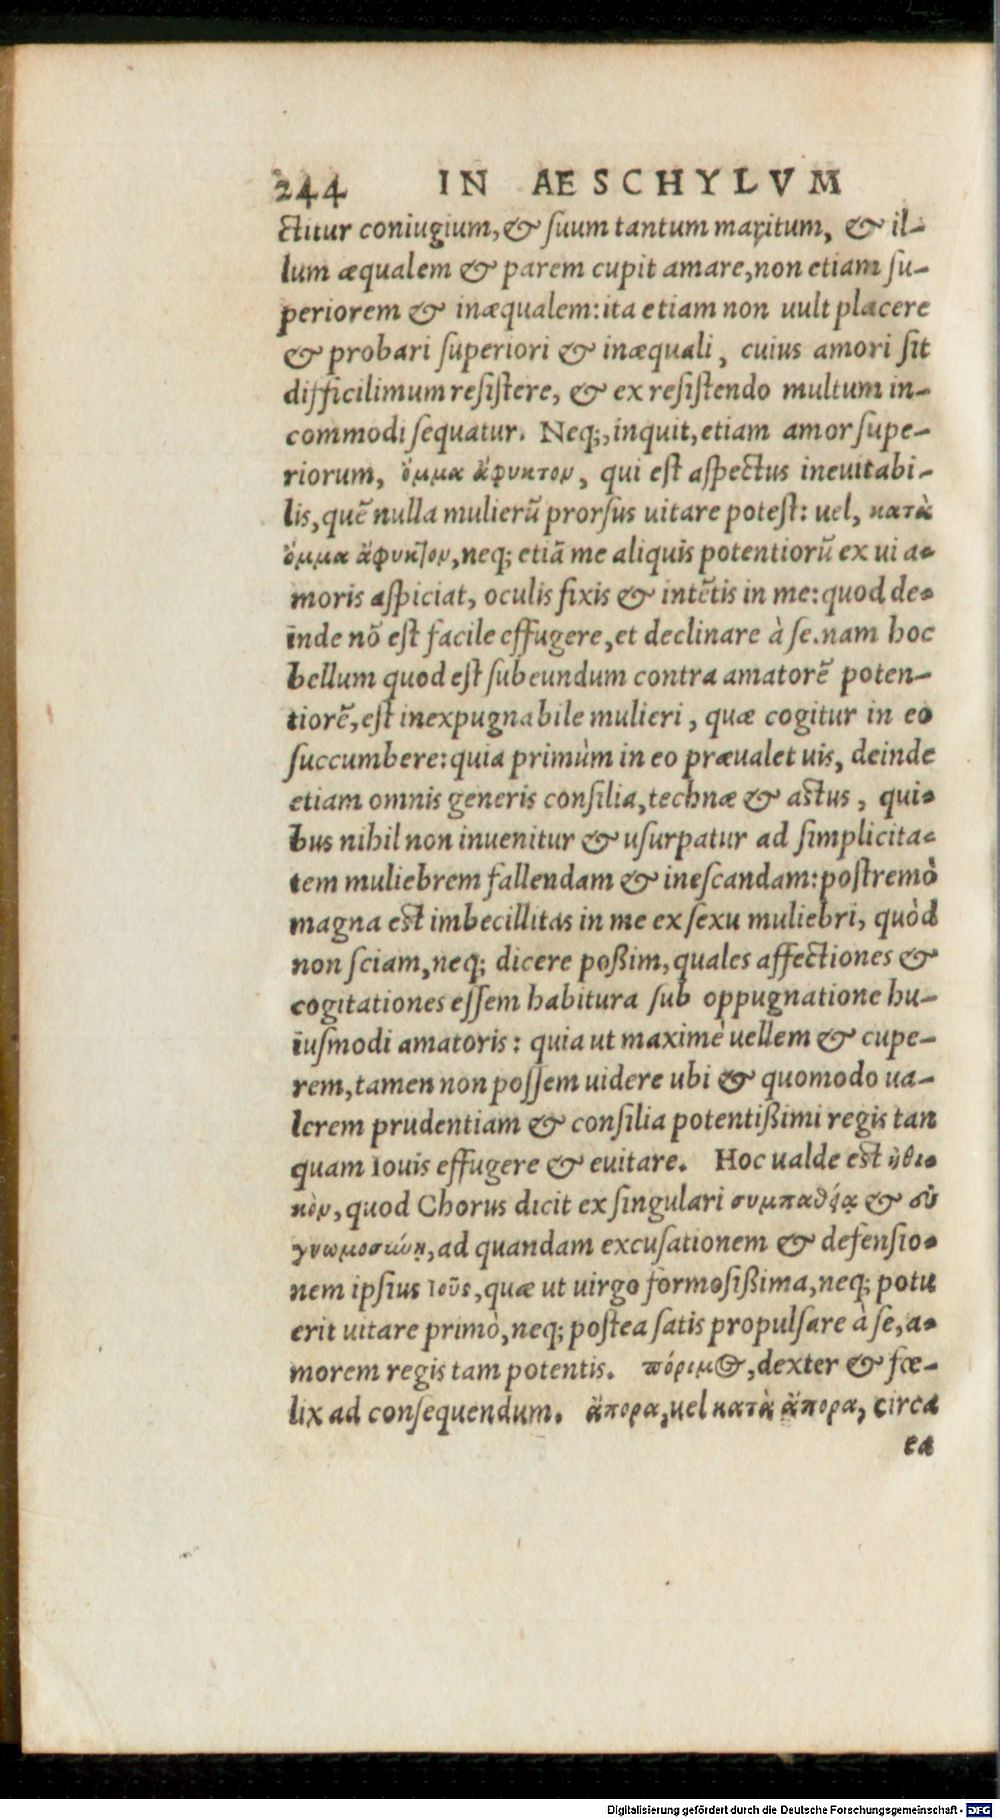 244 IN AESCHYLVM
ctitur coniugium, & suum tantum maritum, & il-
lum æqualem & parem cupit amare, non etiam su-
periorem & inæqualem: ita etiam non uult placere
& probari superiori & inæquali, cuius amori sit
difficilimum resistere, & ex resistendo multum in-
commodi sequatur. Neq;, inquit, etiam amor supe-
riorum, ὄμμα ἄφυκτον, qui est aspectus ineuitabi-
lis, quẽ nulla mulierũ prorsus uitare potest: uel, κατὰ
ὄμμα ἄφυκτον, neq; etiã me aliquis potentiorũ ex ui a-
moris aspiciat, oculis fixis & intẽtis in me: quod de-
inde nõ est facile effugere, et declinare à se. nam hoc
bellum quod est subeundum contra amatorẽ poten-
tiorẽ, est inexpugnabile mulieri, quæ cogitur in eo
succumbere: quia primùm in eo præualet uis, deinde
etiam omnis generis consilia, technæ & astus, qui-
bus nihil non inuenitur & usurpatur ad simplicita-
tem muliebrem fallendam & inescandam: postremò
magna est imbecillitas in me ex sexu muliebri, quòd
non sciam, neq; dicere poßim, quales affectiones &
cogitationes essem habitura sub oppugnatione hu-
iusmodi amatoris: quia ut maximè uellem & cupe-
rem, tamen non possem uidere ubi & quomodo ua-
lerem prudentiam & consilia potentißimi regis tan
quam Iouis effugere & euitare. Hoc ualde est ἠθι-
κὸν, quod Chorus dicit ex singulari συμπαθείᾳ & συ
γνωμοσύνῃ, ad quandam excusationem & defensio-
nem ipsius Ioῦs, quæ ut uirgo formosißima, neq; potu
erit uitare primò, neq; postea satis propulsare à se, a-
morem regis tam potentis. πόριμος, dexter & fœ-
lix ad consequendum. ἄπορα, uel κατὰ ἄπορα, circa
ea
Digitalisierung gefördert durch die Deutsche Forschungsgemeinschaft - DFG